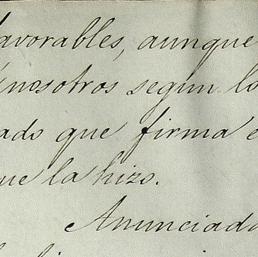 favorables, aunque
nosotros segun lo
ado que firma e
ue la hizo.
Anunciada